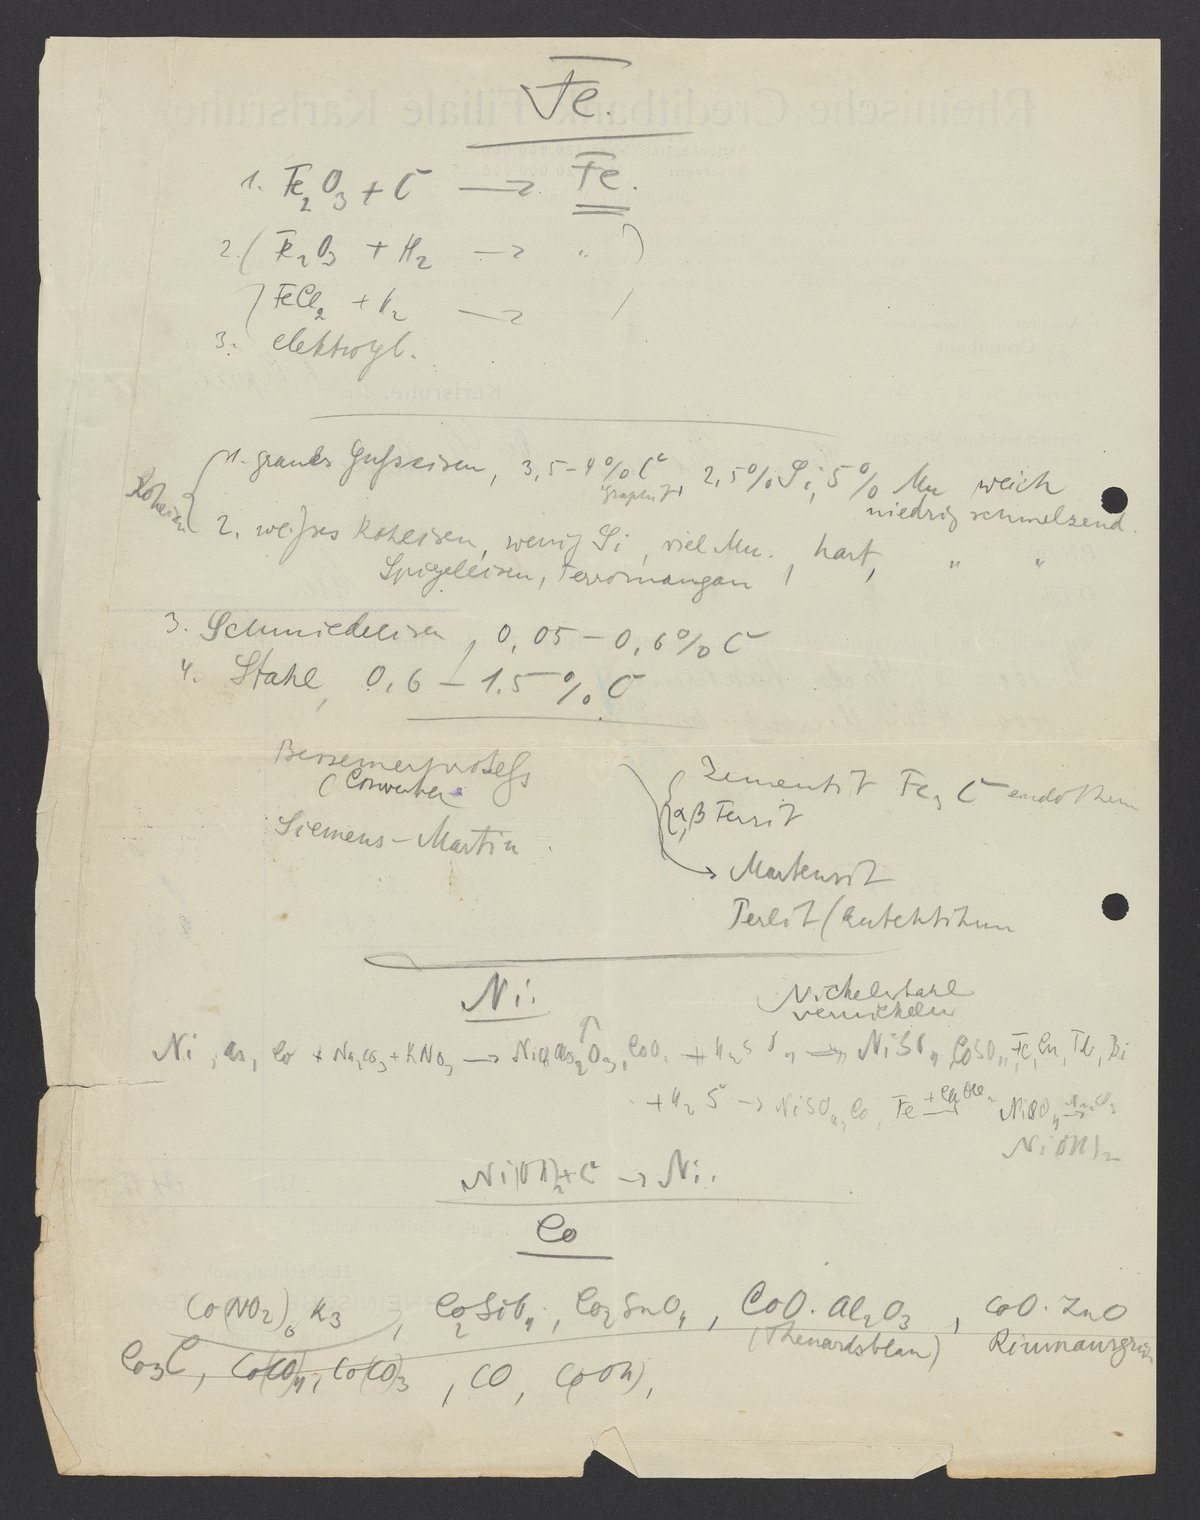 Fe.
1. Fe2O3 + C → Fe.
2. (Fe2O3 + H2 → " )
FeCl2 + H2 →
3. elektrol.
Roheisen
1. graues Gußeisen, 3,5-4% C 2,5% Si, 5% Mn weich
Graphit niedrig schmelzend.
2. weißes Roheisen, wenig Si, viel Mn., hart, " "
Spiegeleisen, Ferromangan
3. Schmiedeeisen, 0,05-0,6% C
4. Stahl, 0,6-1,5% C
Bessemerprozeß
(Converter
Siemens-Martin
Zementit Fe3C endotherm
α, β Ferrit
→ Martensit
Perlit (Eutektikum
Ni.
Nickelstahl
vernickeln
Ni, As, Co + Na2CO3 + KNO3 → NiO, As2O3, CoO, + H2SO4 → NiSO4, CoSO4, Fe, Cu, Pb, Bi
+ H2S → NiSO4, Co, Fe
Ni(OH)2
Ni(OH)2 + C → Ni.
Co
Co(NO2)6K3, Co2SiO4, Co2SnO4, CoO.Al2O3, CoO.ZnO
(Thenardsblau) Rinmannsgrün
Co3C, Co(CO)4, Co(CO)3, CO,